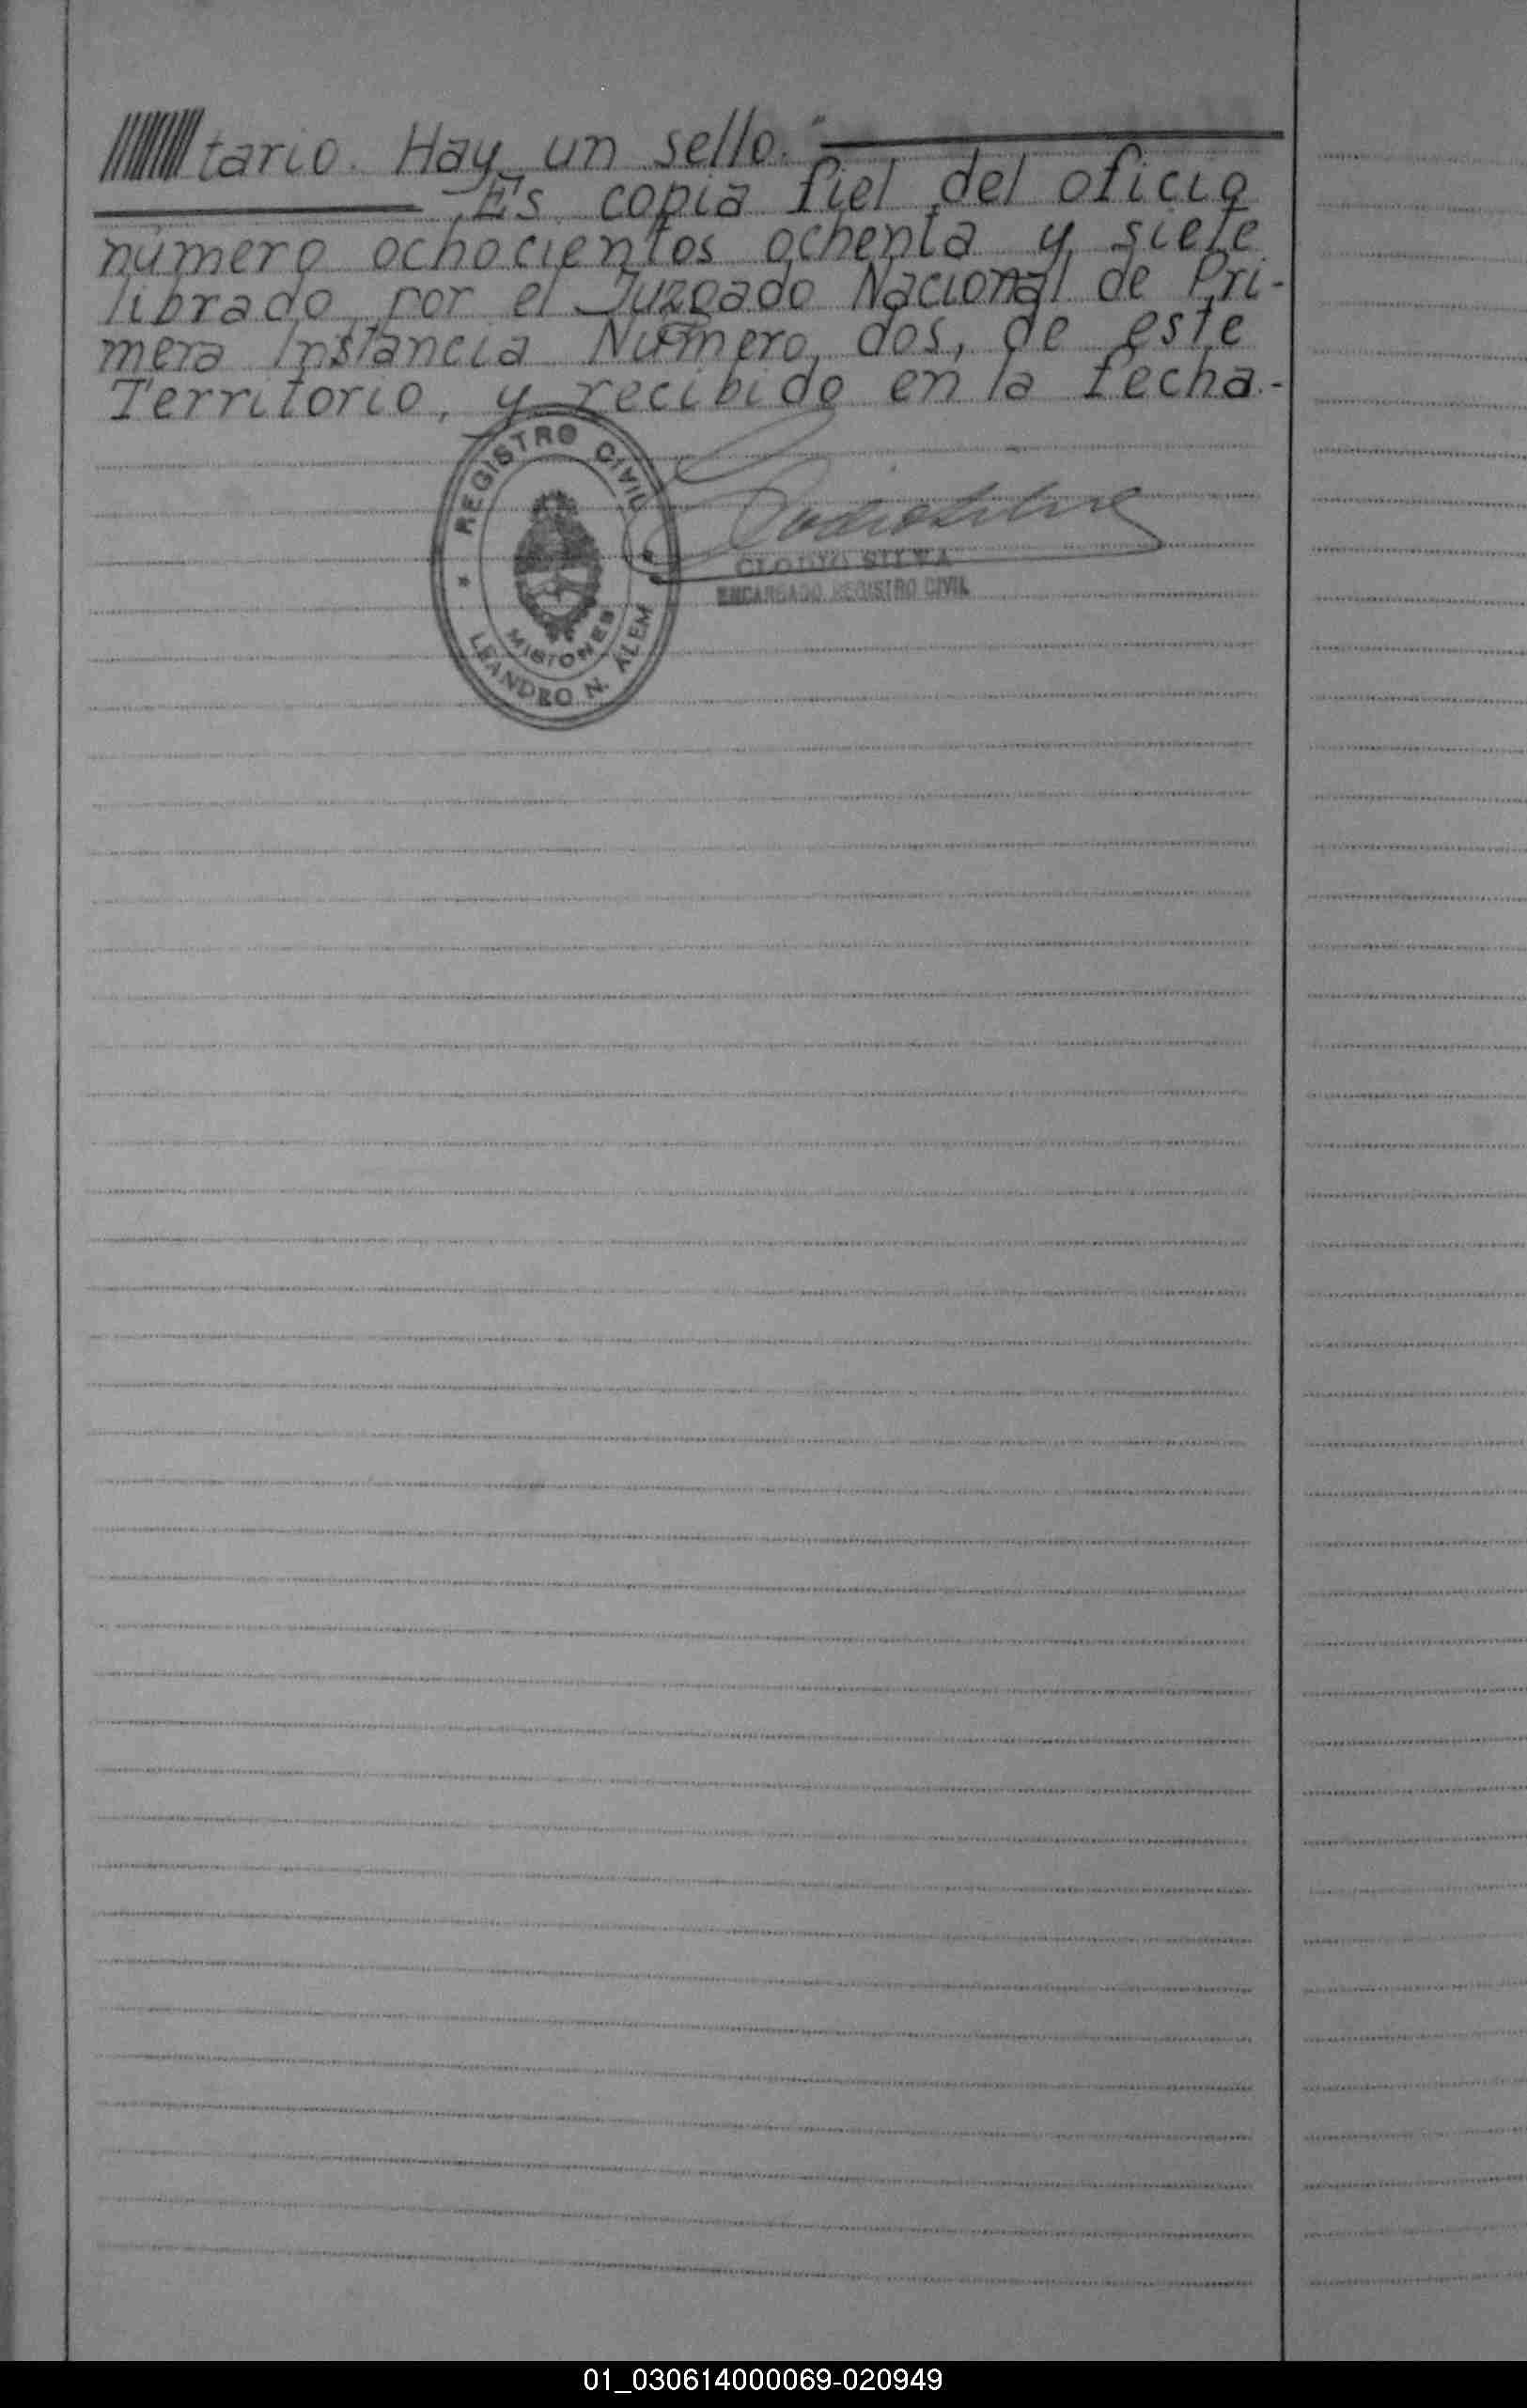 tario. Hay un sello."
Es copia fiel del oficio
número ochocientos ochenta y siete
librado por el Juzgado Nacional de Pri-
mera Instancia Número dos, de este
Territorio, y recibido en la fecha.-
REGISTRO CIVIL
MISIONES
LEANDRO N. ALEM
CLODIO SILVA
ENCARGADO REGISTRO CIVIL
01_030614000069-020949